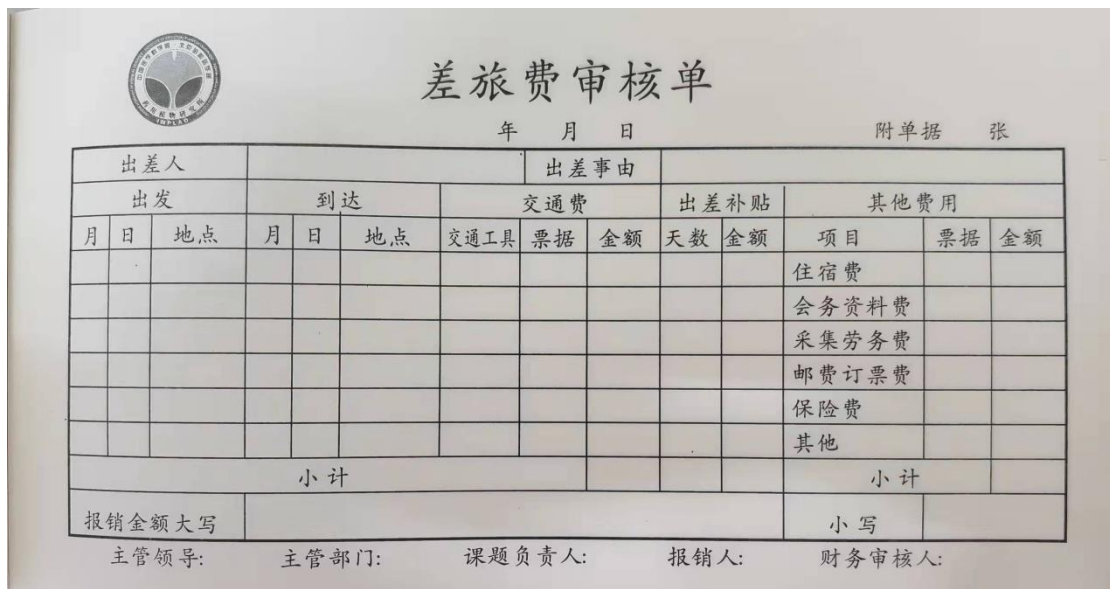 差旅费审核单
年 月 日 附单据 张
出差人 出差事由
出发 到达 交通费 出差补贴 其他费用
月 日 地点 月 日 地点 交通工具 票据 金额 天数 金额 项目 票据 金额
住宿费
会务资料费
采集劳务费
邮费订票费
保险费
其他
小计 小计
报销金额大写 小写
主管领导: 主管部门: 课题负责人: 报销人: 财务审核人:
IMPLAD